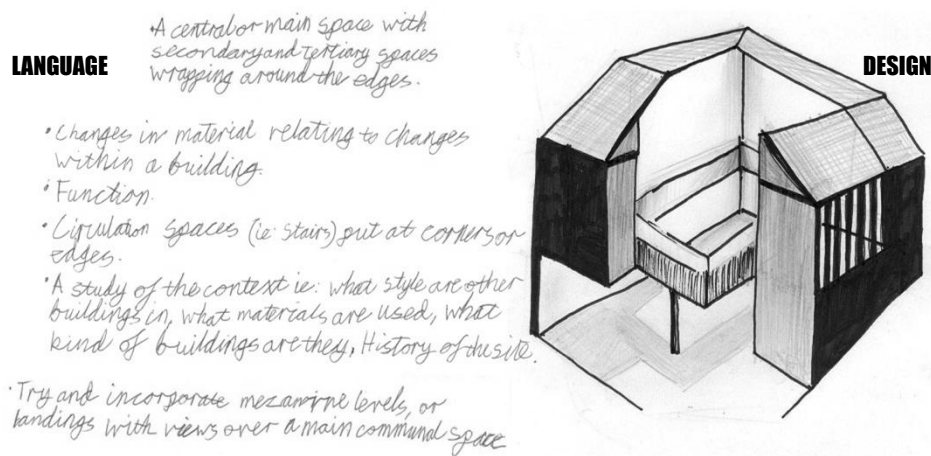 LANGUAGE
DESIGN
·A central or main space with
secondary and Tertiary spaces
wrapping around the edges.
·Changes in material relating to changes
within a building.
·Function.
·Circulation spaces (ie: stairs) put at corners or
edges.
·A study of the context ie: what style are other
buildings in, what materials are used, what
kind of buildings are they, History of the site.
·Try and incorporate mezanine levels, or
landings with views over a main communal space